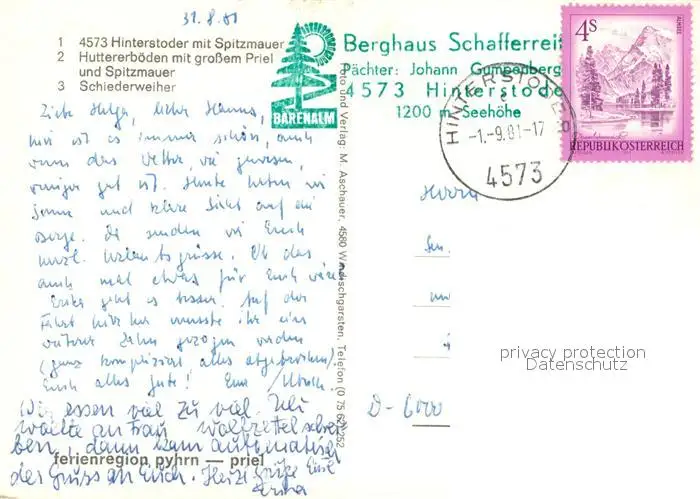 31.8.81
1 4573 Hinterstoder mit Spitzmauer
2 Huttererböden mit großem Priel
und Spitzmauer
3 Schiederweiher
BÄRENALM
Berghaus Schafferreit
Pächter: Johann Gumpenberg
4573 Hinterstode
1200 m Seehöhe
4S
ALMSEE
REPUBLIK ÖSTERREICH
HINTERSTODER
-1.-9.81-17
4573
Liebe Helga, lieber Hannes,
hier ist es immer schön, auch
wenn das Wetter, wie gewesen,
weniger gut ist. Heute hatten wir
Sonne und klare Sicht auf die
Berge. Da senden wir Euch
herzl. Urlaubsgrüsse. Ob das
auch mal etwas für Euch wäre
Erika geht es besser. Auf der
Fahrt hierher musste ihr ein
weiterer Zahn gezogen werden
(ganz kompliziert, alles abgebrochen).
Euch alles Gute! Euer Ulrich
Wir essen viel zu viel. Ich
wollte an Frau schrei-
ben, dann kam automatisch
der Gruss an Euch. Herzl. Grüße Eure
Erika
ferienregion pyhrn — priel
Foto und Verlag: M. Aschauer, 4580 Windischgarsten, Telefon (0 75 62) 252
Herrn
Sen.
D-6000
privacy protection
Datenschutz